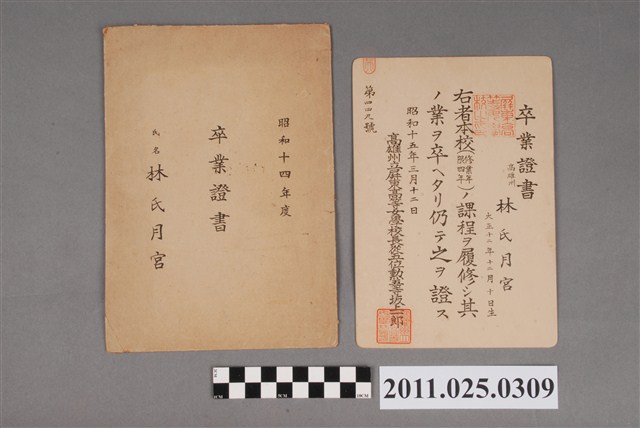 昭和十四年度
卒業證書
氏名 林氏月宮
卒業證書
高雄州
林氏月宮
大正十二年十二月十日生
右者本校(修業年限四年)ノ課程ヲ履修シ其
ノ業ヲ卒ヘタリ仍テ之ヲ證ス
昭和十五年三月十二日
高雄州立屏東高等女學校長從五位勲等坂上一郎
第四四九號
2011.025.0309